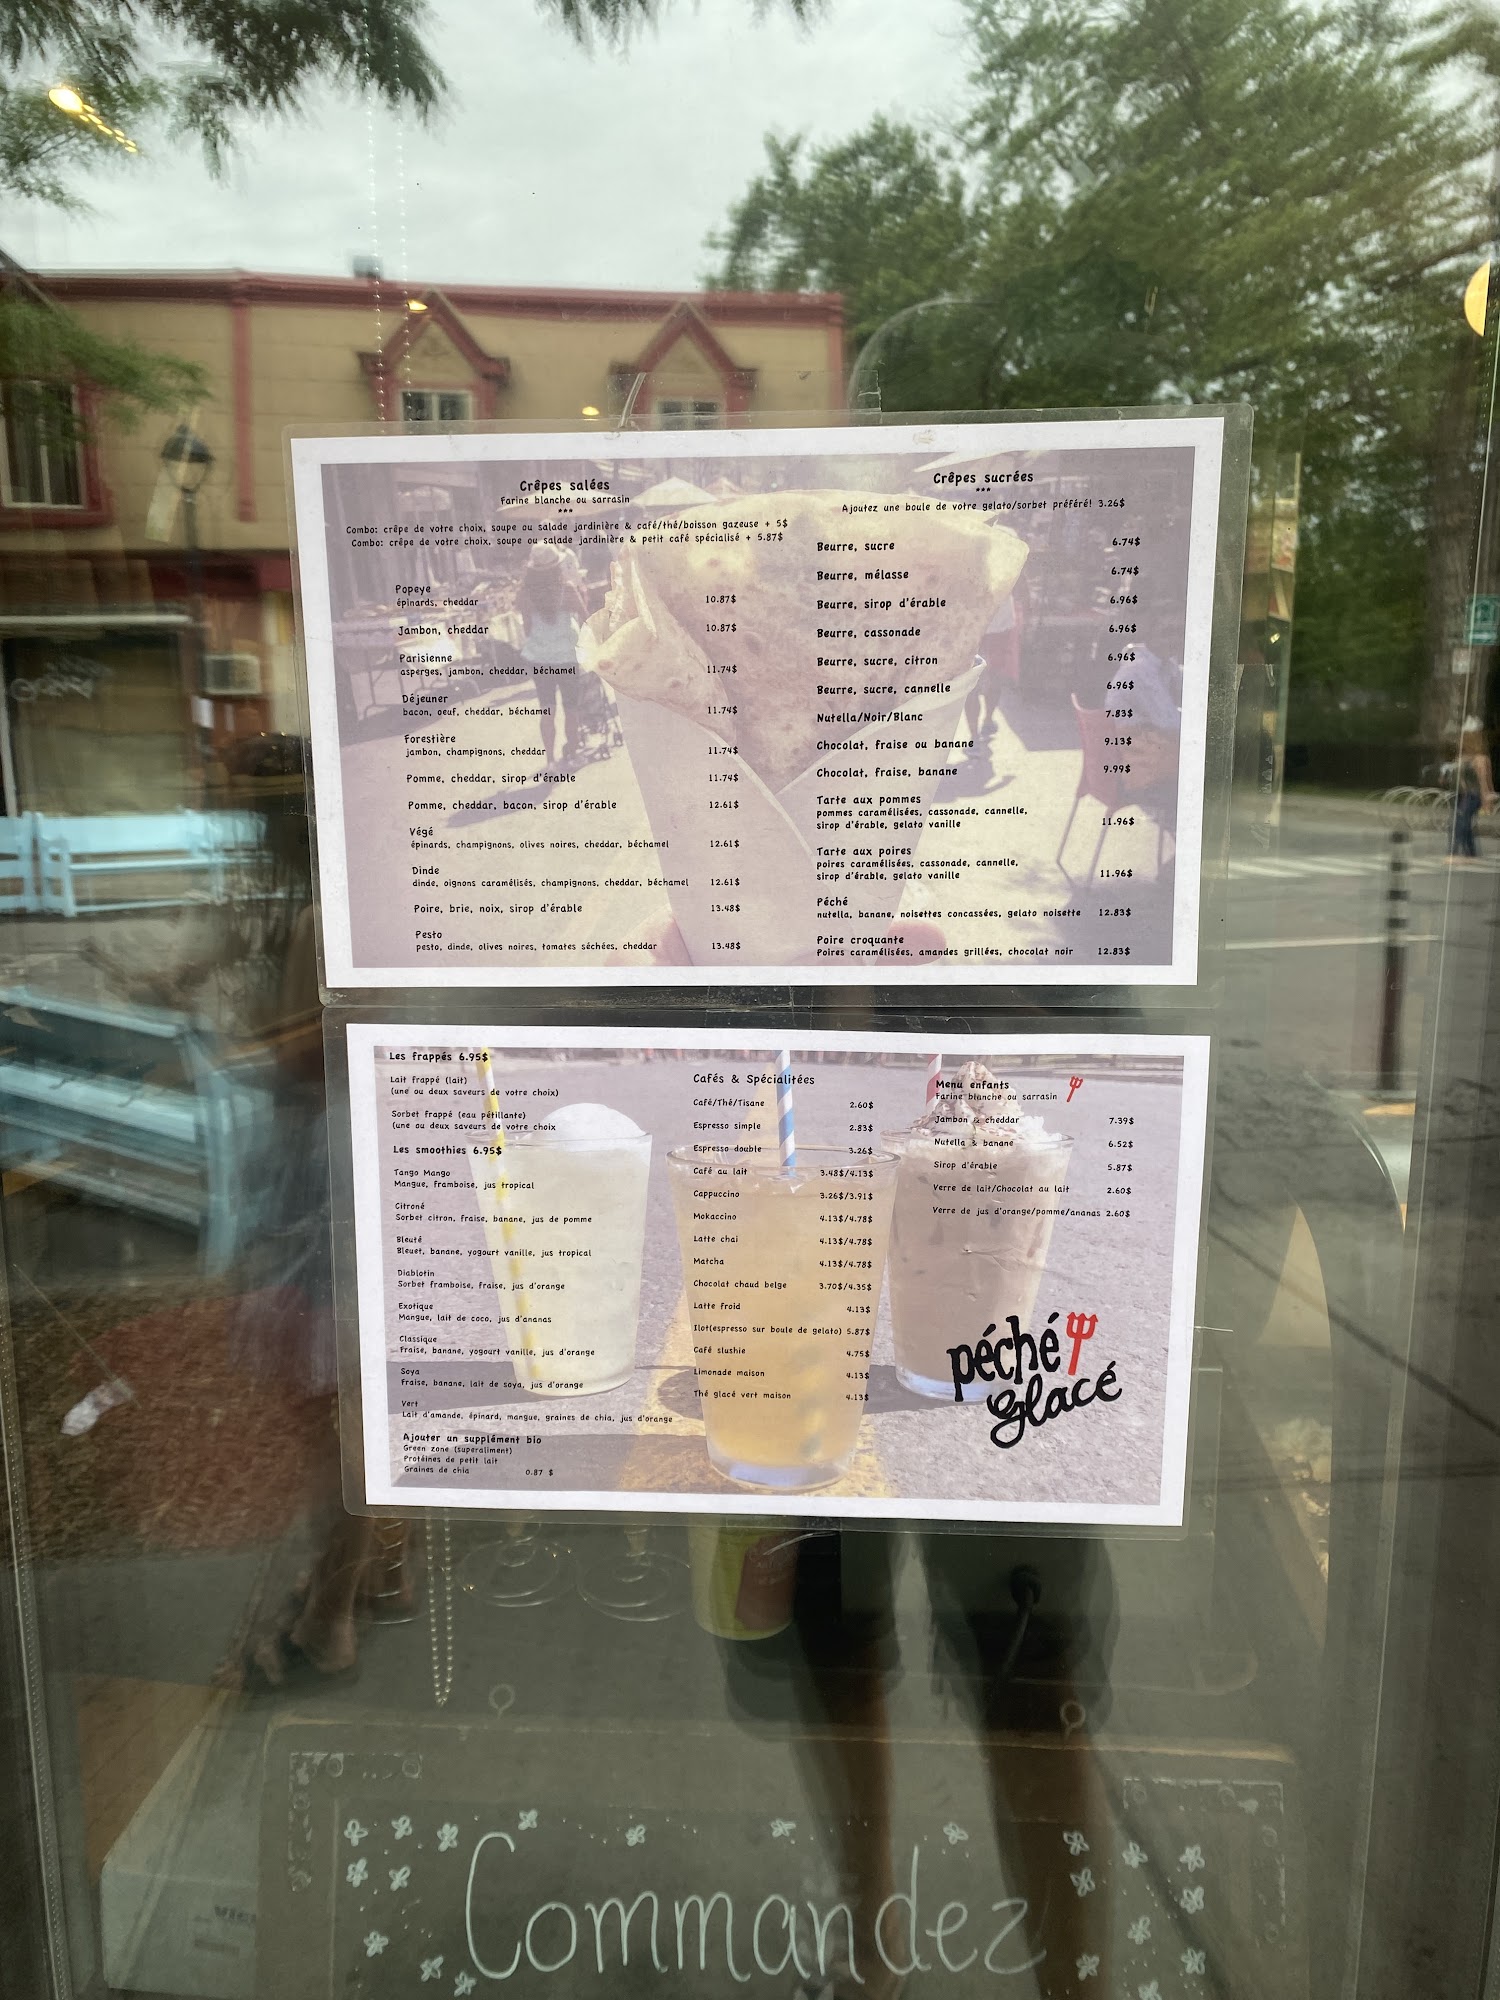 Crêpes salées
Farine blanche ou sarrasin
***
Combo: crêpe de votre choix, soupe ou salade jardinière & café/thé/boisson gazeuse + 5$
Combo: crêpe de votre choix, soupe ou salade jardinière & petit café spécialisé + 5.87$
Popeye
épinards, cheddar 10.87$
Jambon, cheddar 10.87$
Parisienne
asperges, jambon, cheddar, béchamel 11.74$
Déjeuner
bacon, oeuf, cheddar, béchamel 11.74$
Forestière
jambon, champignons, cheddar 11.74$
Pomme, cheddar, sirop d'érable 11.74$
Pomme, cheddar, bacon, sirop d'érable 12.61$
Végé
épinards, champignons, olives noires, cheddar, béchamel 12.61$
Dinde
dinde, oignons caramélisés, champignons, cheddar, béchamel 12.61$
Poire, brie, noix, sirop d'érable 13.48$
Pesto
pesto, dinde, olives noires, tomates séchées, cheddar 13.48$
Crêpes sucrées
***
Ajoutez une boule de votre gelato/sorbet préféré! 3.26$
Beurre, sucre 6.74$
Beurre, mélasse 6.74$
Beurre, sirop d'érable 6.96$
Beurre, cassonade 6.96$
Beurre, sucre, citron 6.96$
Beurre, sucre, cannelle 6.96$
Nutella/Noir/Blanc 7.83$
Chocolat, fraise ou banane 9.13$
Chocolat, fraise, banane 9.99$
Tarte aux pommes
pommes caramélisées, cassonade, cannelle,
sirop d'érable, gelato vanille 11.96$
Tarte aux poires
poires caramélisées, cassonade, cannelle,
sirop d'érable, gelato vanille 11.96$
Péché
nutella, banane, noisettes concassées, gelato noisette 12.83$
Poire croquante
Poires caramélisées, amandes grillées, chocolat noir 12.83$
Les frappés 6.95$
Lait frappé (lait)
(une ou deux saveurs de votre choix)
Sorbet frappé (eau pétillante)
(une ou deux saveurs de votre choix
Les smoothies 6.95$
Tango Mango
Mangue, framboise, jus tropical
Citroné
Sorbet citron, fraise, banane, jus de pomme
Bleuté
Bleuet, banane, yogourt vanille, jus tropical
Diablotin
Sorbet framboise, fraise, jus d'orange
Exotique
Mangue, lait de coco, jus d'ananas
Classique
Fraise, banane, yogourt vanille, jus d'orange
Soya
Fraise, banane, lait de soya, jus d'orange
Vert
Lait d'amande, épinard, mangue, graines de chia, jus d'orange
Ajouter un supplément bio
Green zone (superaliment)
Protéines de petit lait
Graines de chia 0.87 $
Cafés & Spécialitées
Café/Thé/Tisane 2.60$
Espresso simple 2.83$
Espresso double 3.26$
Café au lait 3.48$/4.13$
Cappuccino 3.26$/3.91$
Mokaccino 4.13$/4.78$
Latte chai 4.13$/4.78$
Matcha 4.13$/4.78$
Chocolat chaud belge 3.70$/4.35$
Latte froid 4.13$
Ilot(espresso sur boule de gelato) 5.87$
Café slushie 4.75$
Limonade maison 4.13$
Thé glacé vert maison 4.13$
Menu enfants
Farine blanche ou sarrasin
Jambon & cheddar 7.39$
Nutella & banane 6.52$
Sirop d'érable 5.87$
Verre de lait/Chocolat au lait 2.60$
Verre de jus d'orange/pomme/ananas 2.60$
péché
glacé
Commandez